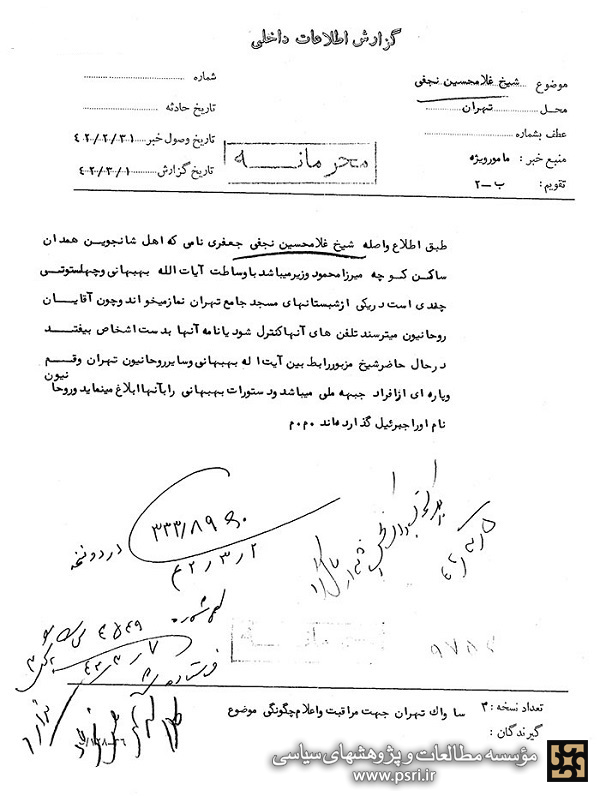 گزارش اطلاعات داخلی
موضوع شیخ غلامحسین نجفی
شماره
محل تهران
تاریخ حادثه
عطف بشماره
تاریخ وصول خبر ۴۲/۲/۳۱
منبع خبر : مامورویژه
تاریخ گزارش ۴۲/۳/۱
تقویم : ب-۲
محرمانه
طبق اطلاع واصله شیخ غلامحسین نجفی جعفری نامی که اهل شانجوین همدان
ساکن کوچه میرزامحمود وزیرمیباشد باوساطت آیات الله بهبهانی وچهلستوتی
چندی است دریکی ازشبستانهای مسجد جامع تهران نمازمیخواند وچون آقایان
روحانیون میترسند تلفن های آنهاکنترل شود یانامه آنها بدست اشخاص بیفتد
درحال حاضرشیخ مزبوررابط بین آیت اله بهبهانی وسایرروحانیون تهران وقم
وپاره ای ازافراد جبهه ملی میباشد ودستورات بهبهانی رابآنهاابلاغ مینماید وروحانیون
نام اوراجبرئیل گذارده‌اند م م
۳۳۳/۸۹۶۰
در دو نسخه
۴۲٫۳٫۲
۹۷۸۴
تعداد نسخه : ۳
ساواك تهران جهت مراقبت واعلام چگونگی موضوع
گیرندگان :
مؤسسه مطالعات و پژوهشهای سیاسی
www.psri.ir